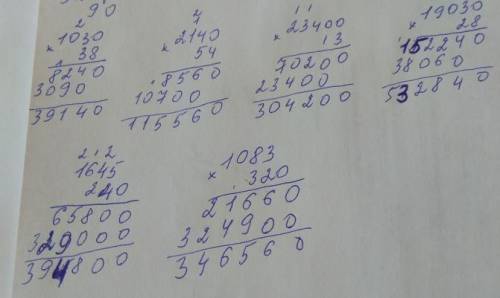 90
2
1030
× 38
8240
3090
39140
2140
× 54
8560
10700
115560
11
23400
× 13
70200
23400
304200
19030
× 28
152240
38060
532840
2 1 2
1645
240
65800
329000
394800
1083
× 320
21660
324900
346560